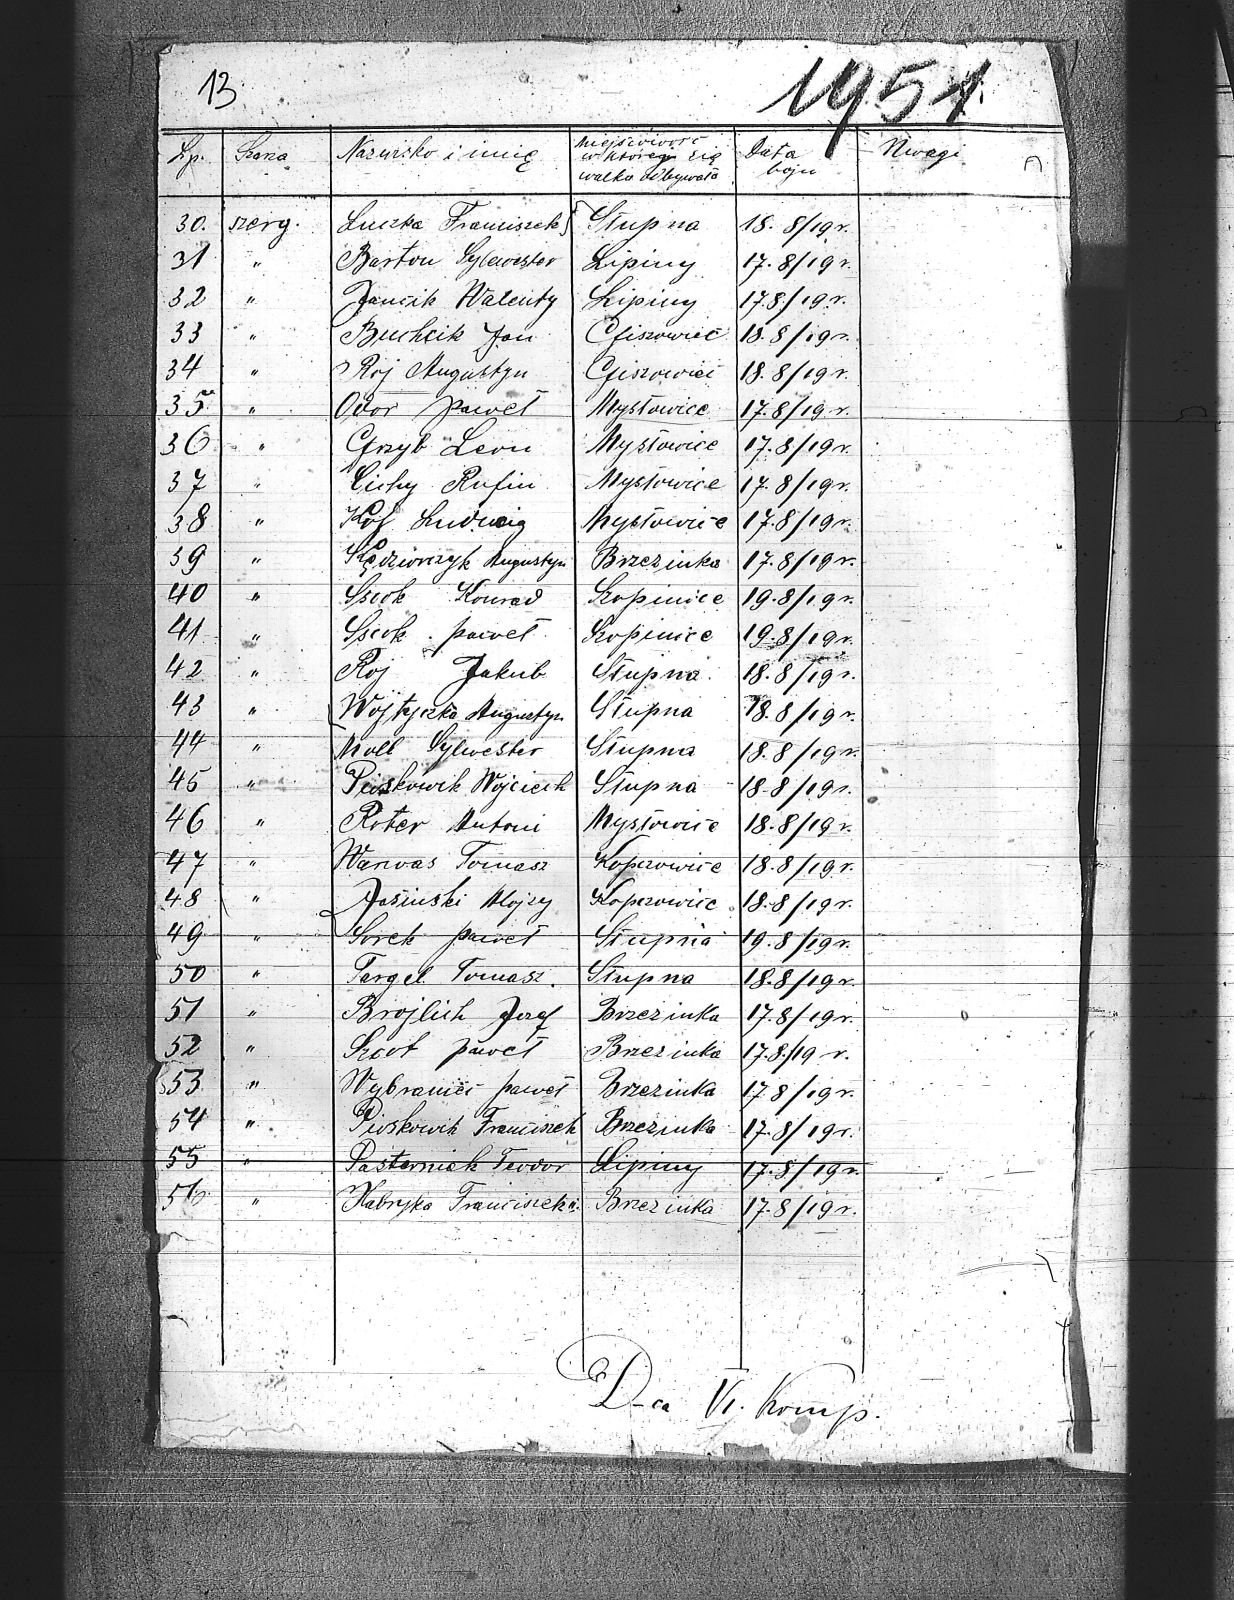 13 1951
Lp. Szarża Nazwisko i imię Miejscowość w której się walka odbywała Data boju Uwagi
30. szerg. Luczka Franciszek Słupna 18. 8/19 r.
31 " Barton Sylwester Lipiny 17. 8/19 r.
32 " Jancik Walenty Lipiny 17.8/19 r.
33 " Buchcik Jan 18.8/19 r.
34 " Roj Augustyn 18.8/19 r.
35 " Odor paweł Mysłowice 17.8/19 r.
36 " Grzyb Leon Mysłowice 17.8/19 r.
37 " Cichy Rufin Mysłowice 17.8/19 r.
38 " Ludwig Mysłowice 17.8/19 r.
39 " Kędziorczyk Augustyn Brzezinka 17.8/19 r.
40 " Konrad Szopinice 19.8/19 r.
41 " paweł Szopinice 19.8/19 r.
42 " Roj Jakub Słupna 18.8/19 r.
43 " Wojtyczka Augustyn Słupna 18.8/19 r.
44 " Moll Sylwester Słupna 18.8/19 r.
45 " Pioskowik Wojciech Słupna 18.8/19 r.
46 " Roter Antoni Mysłowice 18.8/19 r.
47 " Warwas Tomasz Kopczowice 18.8/19 r.
48 " Jasinski Alojzy Kopczowice 18.8/19 r.
49 " Sorek paweł Słupna 19.8/19 r.
50 " Fargel Tomasz. Słupna 18.8/19 r.
51 " Brojlich Jozef Brzezinka 17.8/19 r.
52 " paweł Brzezinka 17.8/19 r.
53 " Wybraniec paweł Brzezinka 17.8/19 r.
54 " Pioskowik Franciszek Brzezinka 17.8/19 r.
55 " Pasterniak Teodor Lipiny 17.8/19 r.
56 " Habryka Franciszek Brzezinka 17.8/19 r.
D-ca VI. Komp.